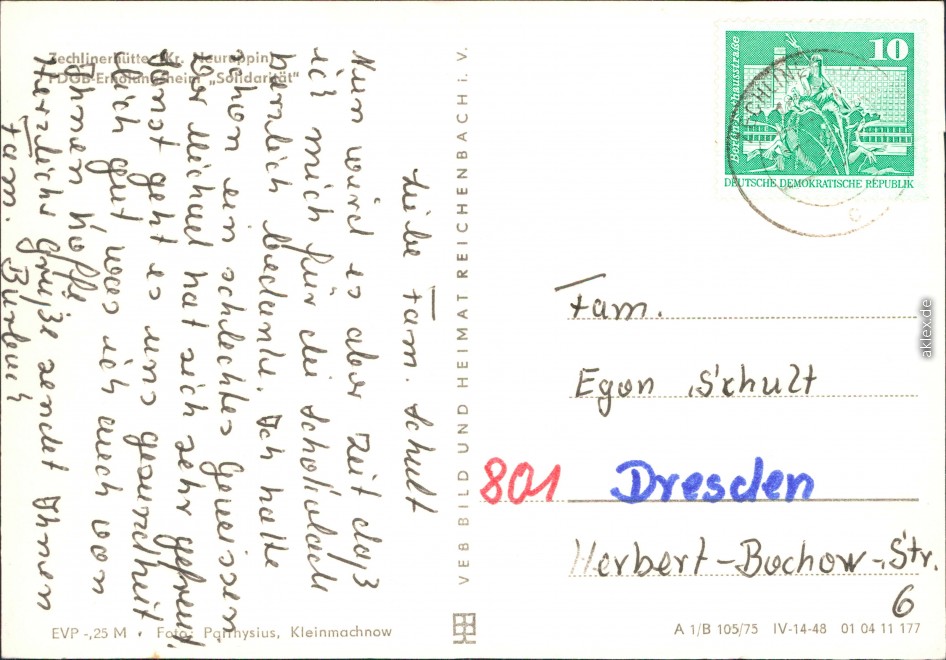 Zechlinerhütte (Kr. Neuruppin)
FDGB-Erholungsheim „Solidarität“
Liebe Fam. Schult
Nun wird es aber Zeit daß
ich mich für die Schokolade
herzlich bedanke. Ich hatte
schon ein schlechtes Gewissen
Der Michael hat sich sehr gefreut.
Sonst geht es uns gesundheit
lich gut was ich auch von
Ihnen hoffe
Herzliche Grüße sendet Ihnen
Fam.
VEB BILD UND HEIMAT REICHENBACH i. V.
10
Berlin-Rathausstraße
DEUTSCHE DEMOKRATISCHE REPUBLIK
Fam.
Egon Schult
801 Dresden
Herbert-Bochow-Str.
6
EVP -,25 M • Foto: Parthysius, Kleinmachnow
A 1/B 105/75 IV-14-48 01 04 11 177
aklex.de